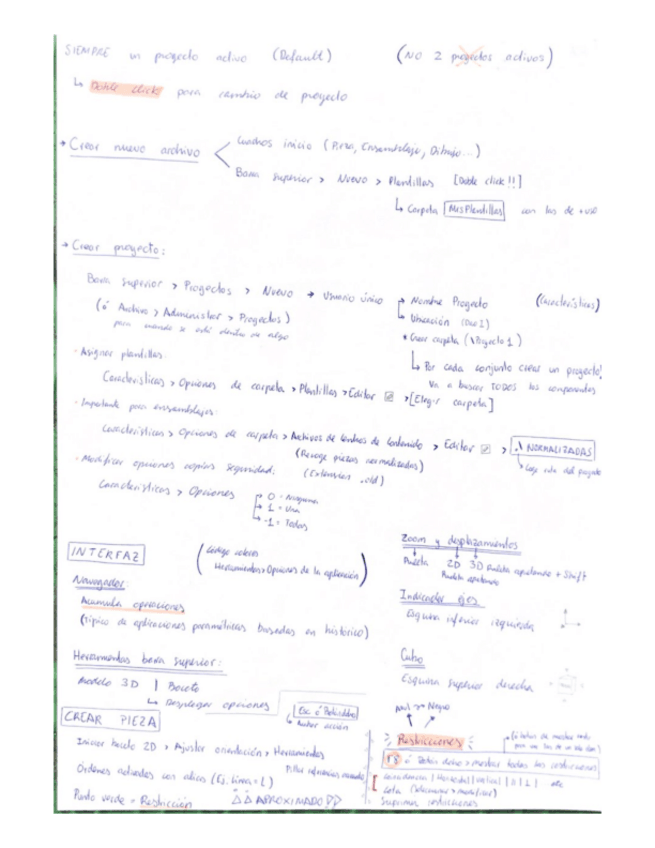 SIEMPRE un proyecto activo (Default) (NO 2 proyectos activos)
↳ Doble click para cambio de proyecto
→ Crear nuevo archivo < Cuadros inicio (Pieza, Ensamblaje, Dibujo...)
Barra superior > Nuevo > Plantillas [Doble click!!]
↳ Carpeta MisPlantillas con las de + uso
→ Crear proyecto:
Barra superior > Proyectos > Nuevo → Usuario único → Nombre Proyecto (Características)
(ó Archivo > Administrar > Proyectos) ↳ Ubicación
para cuando se esté dentro de algo * Crear carpeta (\Proyecto 1)
· Asignar plantillas: ↳ Por cada conjunto crear un proyecto!
Características > Opciones de carpeta > Plantillas > Editar > [Elegir carpeta] Va a buscar TODOS los componentes
· Importante para ensamblajes:
Características > Opciones de carpeta > Archivos de Centros de Contenido > Editar > .\NORMALIZADAS
(Recoge piezas normalizadas)
· Modificar opciones copias seguridad: (Extensión .old)
Características > Opciones → 0 = Ninguna
→ 1 = Una
→ -1 = Todas
INTERFAZ (Código colores
Herramientas > Opciones de la aplicación)
Navegador:
Acumula operaciones
(típico de aplicaciones paramétricas basadas en histórico)
Herramientas barra superior:
Modelo 3D | Boceto
↳ Desplegar opciones
Zoom y desplazamientos
Ruedita 2D 3D Ruedita apretando + Shift
Ruedita apretando
Indicador ejes
Esquina inferior izquierda
Cubo
Esquina superior derecha
CREAR PIEZA
Esc ó Botón dcho
Iniciar boceto 2D > Ajustar orientación > Herramientas
Órdenes activadas con alias (Ej. Línea = L)
Punto verde = Restricción APROXIMADO
Azul → Negro
Restricciones
F8 ó Botón dcho > mostrar todas las restricciones
Cota (Seleccionar > modificar)
Suprimir restricciones